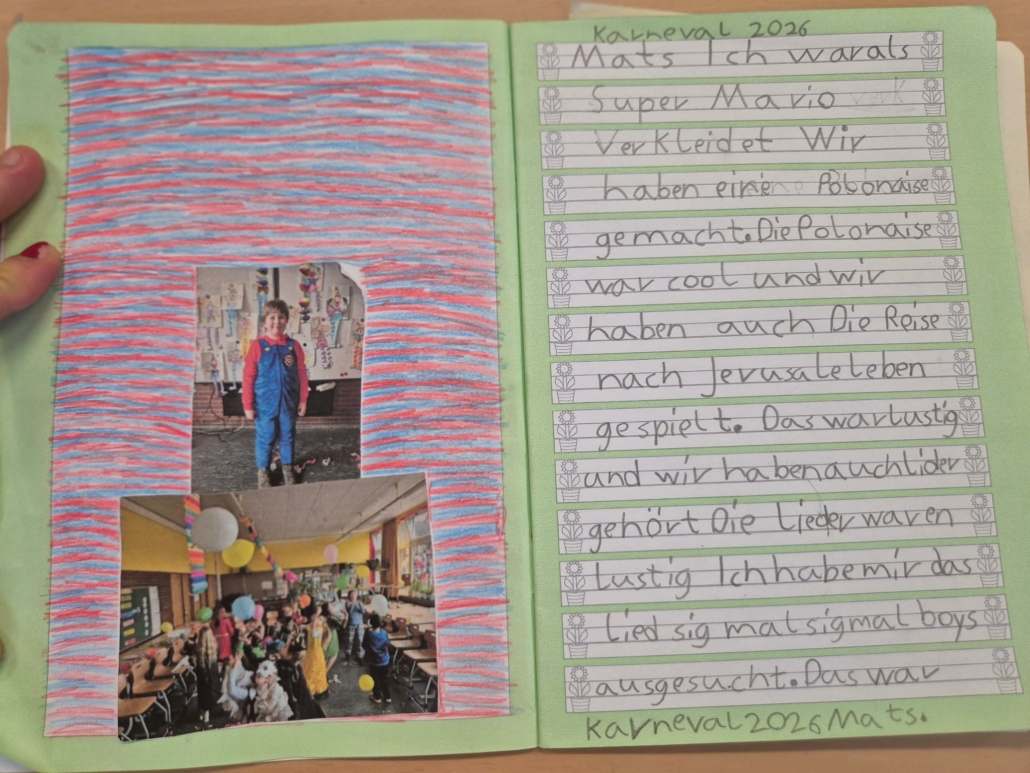 Karneval 2026
Mats Ich warals
Super Mario
Verkleidet Wir
haben eine Polonaise
gemacht. Die Polonaise
war cool und wir
haben auch Die Reise
nach Jerusaleleben
gespielt. Das war lustig
und wir haben auch lider
gehört Die Lieder waren
lustig Ich habe mir das
Lied sig mal sigmal boys
ausgesucht. Das war
Karneval 2026 Mats.